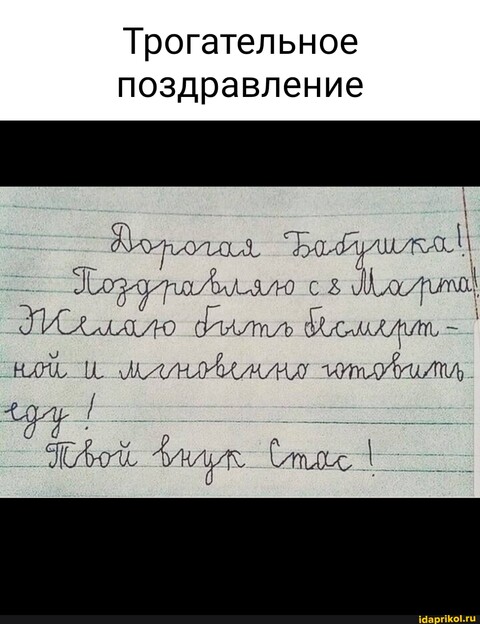 Трогательное
поздравление
Дорогая Бабушка!
Поздравляю с 8 Марта!
Желаю быть бесмерт-
ной и мгновенно готовить
еду!
Твой внук Стас!
idaprikol.ru